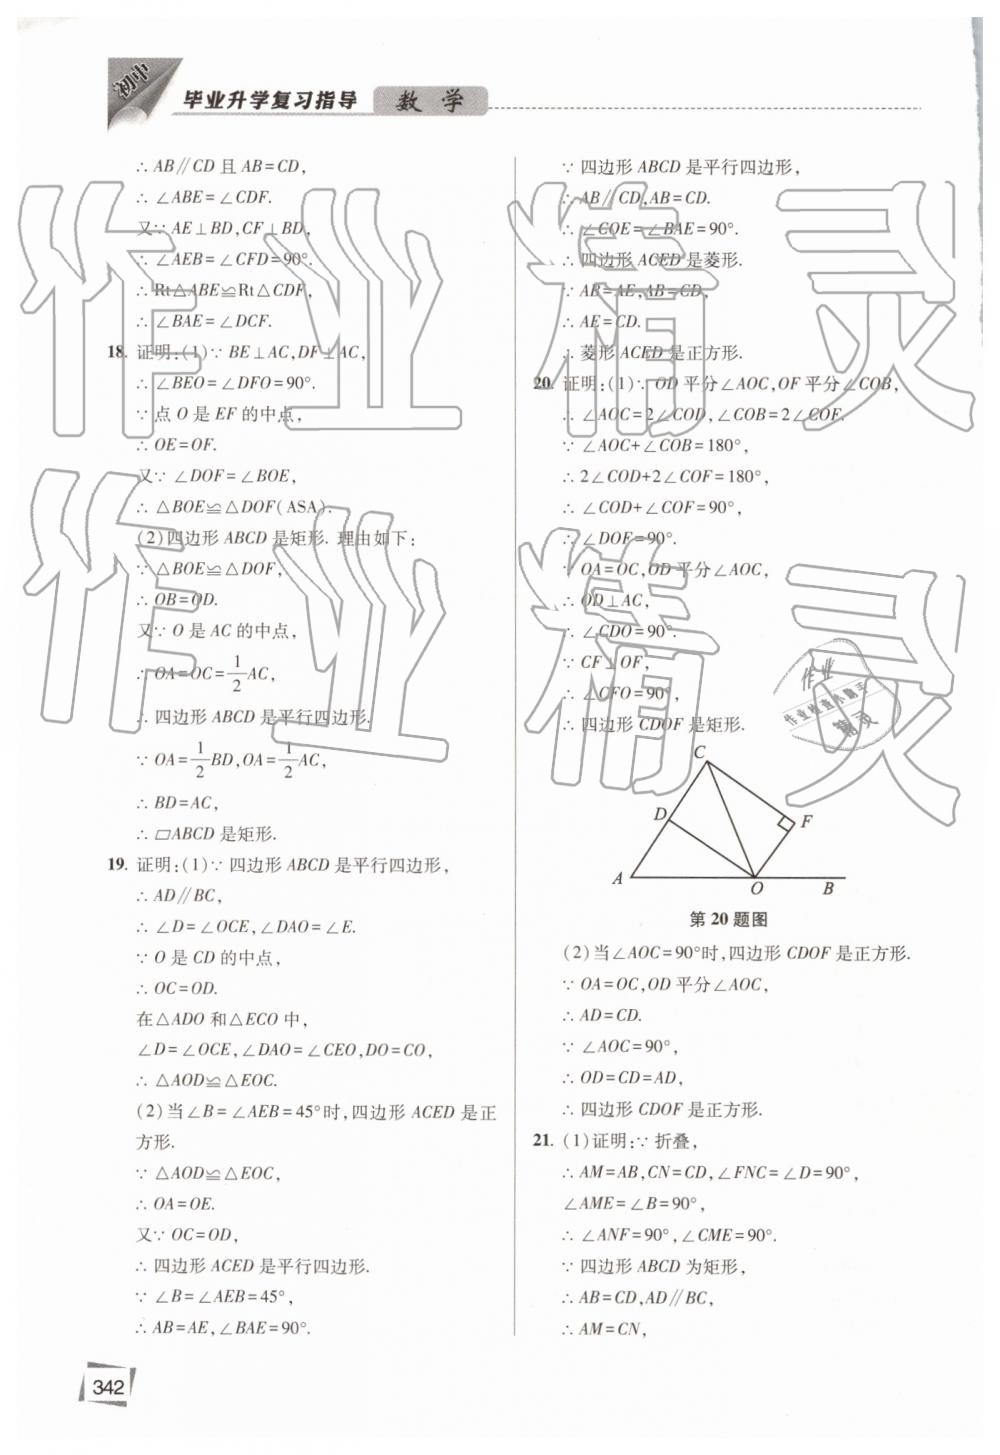 初中
毕业升学复习指导 数学
∴ AB∥CD 且 AB=CD，
∴ ∠ABE=∠CDF.
又∵ AE⊥BD,CF⊥BD，
∴ ∠AEB=∠CFD=90°.
∴ Rt△ABE≌Rt△CDF，
∴ ∠BAE=∠DCF.
18. 证明:(1)∵ BE⊥AC,DF⊥AC，
∴ ∠BEO=∠DFO=90°.
∵ 点 O 是 EF 的中点，
∴ OE=OF.
又∵ ∠DOF=∠BOE，
∴ △BOE≌△DOF(ASA).
(2)四边形 ABCD 是矩形. 理由如下：
∵ △BOE≌△DOF，
∴ OB=OD.
又∵ O 是 AC 的中点，
∴ OA=OC=1/2AC，
∴ 四边形 ABCD 是平行四边形.
∵ OA=1/2BD,OA=1/2AC，
∴ BD=AC，
∴ ▱ABCD 是矩形.
19. 证明:(1)∵ 四边形 ABCD 是平行四边形，
∴ AD∥BC，
∴ ∠D=∠OCE,∠DAO=∠E.
∵ O 是 CD 的中点，
∴ OC=OD.
在△ADO 和△ECO 中，
∠D=∠OCE,∠DAO=∠CEO,DO=CO，
∴ △AOD≌△EOC.
(2)当∠B=∠AEB=45°时,四边形 ACED 是正
方形.
∵ △AOD≌△EOC，
∴ OA=OE.
又∵ OC=OD，
∴ 四边形 ACED 是平行四边形.
∵ ∠B=∠AEB=45°，
∴ AB=AE,∠BAE=90°.
∵ 四边形 ABCD 是平行四边形，
∴ AB∥CD,AB=CD.
∴ ∠COE=∠BAE=90°.
∴ 四边形 ACED 是菱形.
∵ AB=AE,AB=CD，
∴ AE=CD.
∴ 菱形 ACED 是正方形.
20. 证明:(1)∵ OD 平分∠AOC,OF 平分∠COB，
∴ ∠AOC=2∠COD,∠COB=2∠COF.
∵ ∠AOC+∠COB=180°，
∴ 2∠COD+2∠COF=180°，
∴ ∠COD+∠COF=90°，
∴ ∠DOF=90°.
∵ OA=OC,OD 平分∠AOC，
∴ OD⊥AC，
∴ ∠CDO=90°.
∵ CF⊥OF，
∴ ∠CFO=90°，
∴ 四边形 CDOF 是矩形.
C
D
F
A
O
B
第 20 题图
(2)当∠AOC=90°时,四边形 CDOF 是正方形.
∵ OA=OC,OD 平分∠AOC，
∴ AD=CD.
∵ ∠AOC=90°，
∴ OD=CD=AD，
∴ 四边形 CDOF 是正方形.
21. (1)证明:∵ 折叠，
∴ AM=AB,CN=CD,∠FNC=∠D=90°，
∠AME=∠B=90°，
∴ ∠ANF=90°,∠CME=90°.
∵ 四边形 ABCD 为矩形，
∴ AB=CD,AD∥BC，
∴ AM=CN，
342
作业精灵
作业精灵
作业
作业检查小助手
精灵